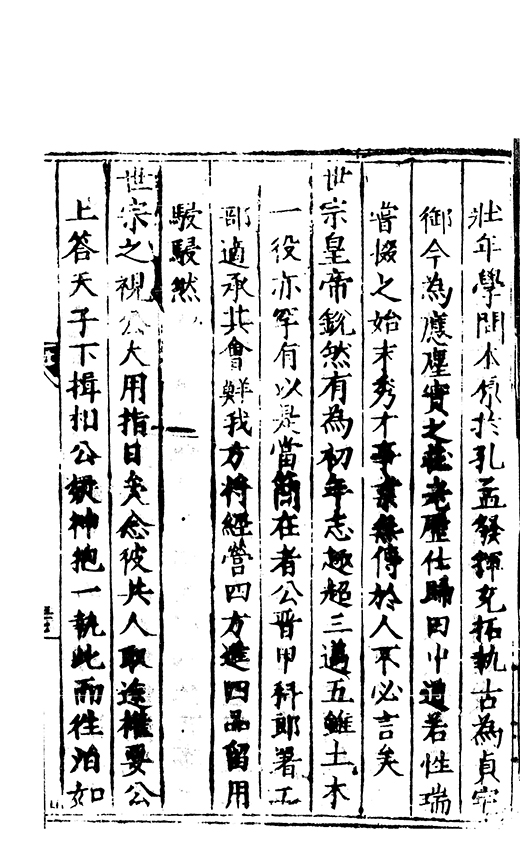 壯年學問本原於孔孟發揮充拓執古為貞字
御今為應歷實之莊老歷仕歸田小遭若性瑞
嘗惙之始末秀才事業無傳於人不必言矣
世宗皇帝銳然有為初年志極超三邁五雖土木
一役亦罕有以是當簡在者公晋甲科郎署工
部適承其會鮮我方將經營四方進四品留用
駸駸然
世宗之視公大用指日矣念彼共人取途權要公
上答天子下揖相公鍊神抱一執此而往泊如